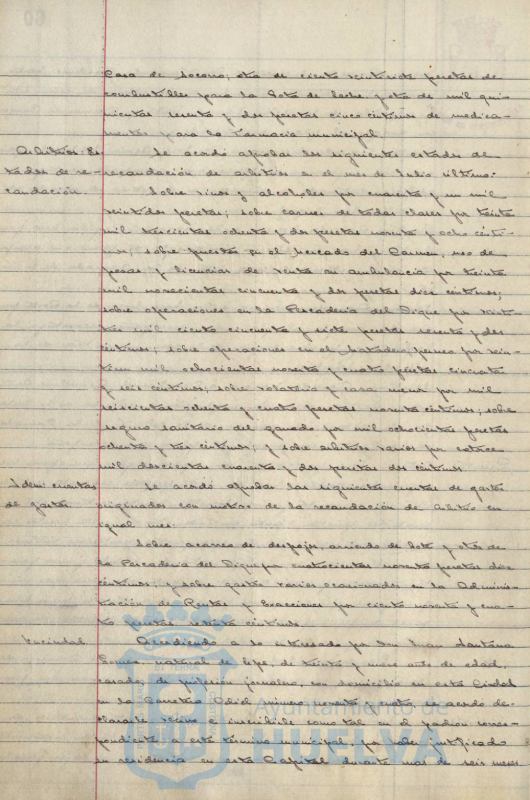 Casa de Socorro; otra de ciento veintisiete pesetas de
combustibles para la Gota de leche, y otra de mil qui-
nientas sesenta y dos pesetas cinco céntimos de medica-
mentos para la farmacia municipal.
Arbitrios: Es- Se acordó aprobar los siguientes estados de
tados de re- recaudación de arbitrios en el mes de Julio último:
caudación. Sobre vinos y alcoholes por cuarenta y un mil
veintidos pesetas; sobre carnes de todas clases por treinta
mil trescientas ochenta y dos pesetas noventa y ocho cénti-
mos; sobre puestos en el Mercado del Carmen, uso de
pesas y licencias de venta en ambulancia por treinta
mil novecientas cincuenta y dos pesetas diez céntimos;
sobre operaciones en la Pescadería del Dique por veinti-
tres mil ciento cincuenta y siete pesetas sesenta y dos
céntimos; sobre operaciones en el Matadero, perneo por vein-
tiun mil ochocientas noventa y cuatro pesetas cincuenta
y seis céntimos; sobre volatería y casa menor por mil
seiscientas ochenta y cuatro pesetas noventa céntimos; sobre
seguro sanitario del ganado por mil ochocientas pesetas
ochenta y tres céntimos; y sobre arbitrios varios por catorce
mil doscientas cuarenta y dos pesetas dos céntimos.
Idem: cuentas Se acordó aprobar las siguientes cuentas de gastos
de gastos. originados con motivo de la recaudación de arbitrios en
igual mes:
Sobre acarreo de despojos, arriendo de bote y otros de
la Pescadería del Dique por cuatrocientas noventa pesetas diez
céntimos; y sobre gastos varios ocasionados en la Adminis-
tración de Rentas y Exacciones por ciento noventa y cua-
tro pesetas setenta céntimos.
Vecindad. Accediendo a lo interesado por Don Juan Santana
Gomez, natural de Lepe, de treinta y nueve años de edad,
casado, de profesión jornalero, con domicilio en esta Ciudad
en la Carretera Odiel número noventa y cuatro, se acordó de-
clararle vecino e inscribirle como tal en el padron corres-
pondiente de este término municipal, por haber justificado
su residencia en esta Capital durante mas de seis meses
Ayuntamiento de
HUELVA